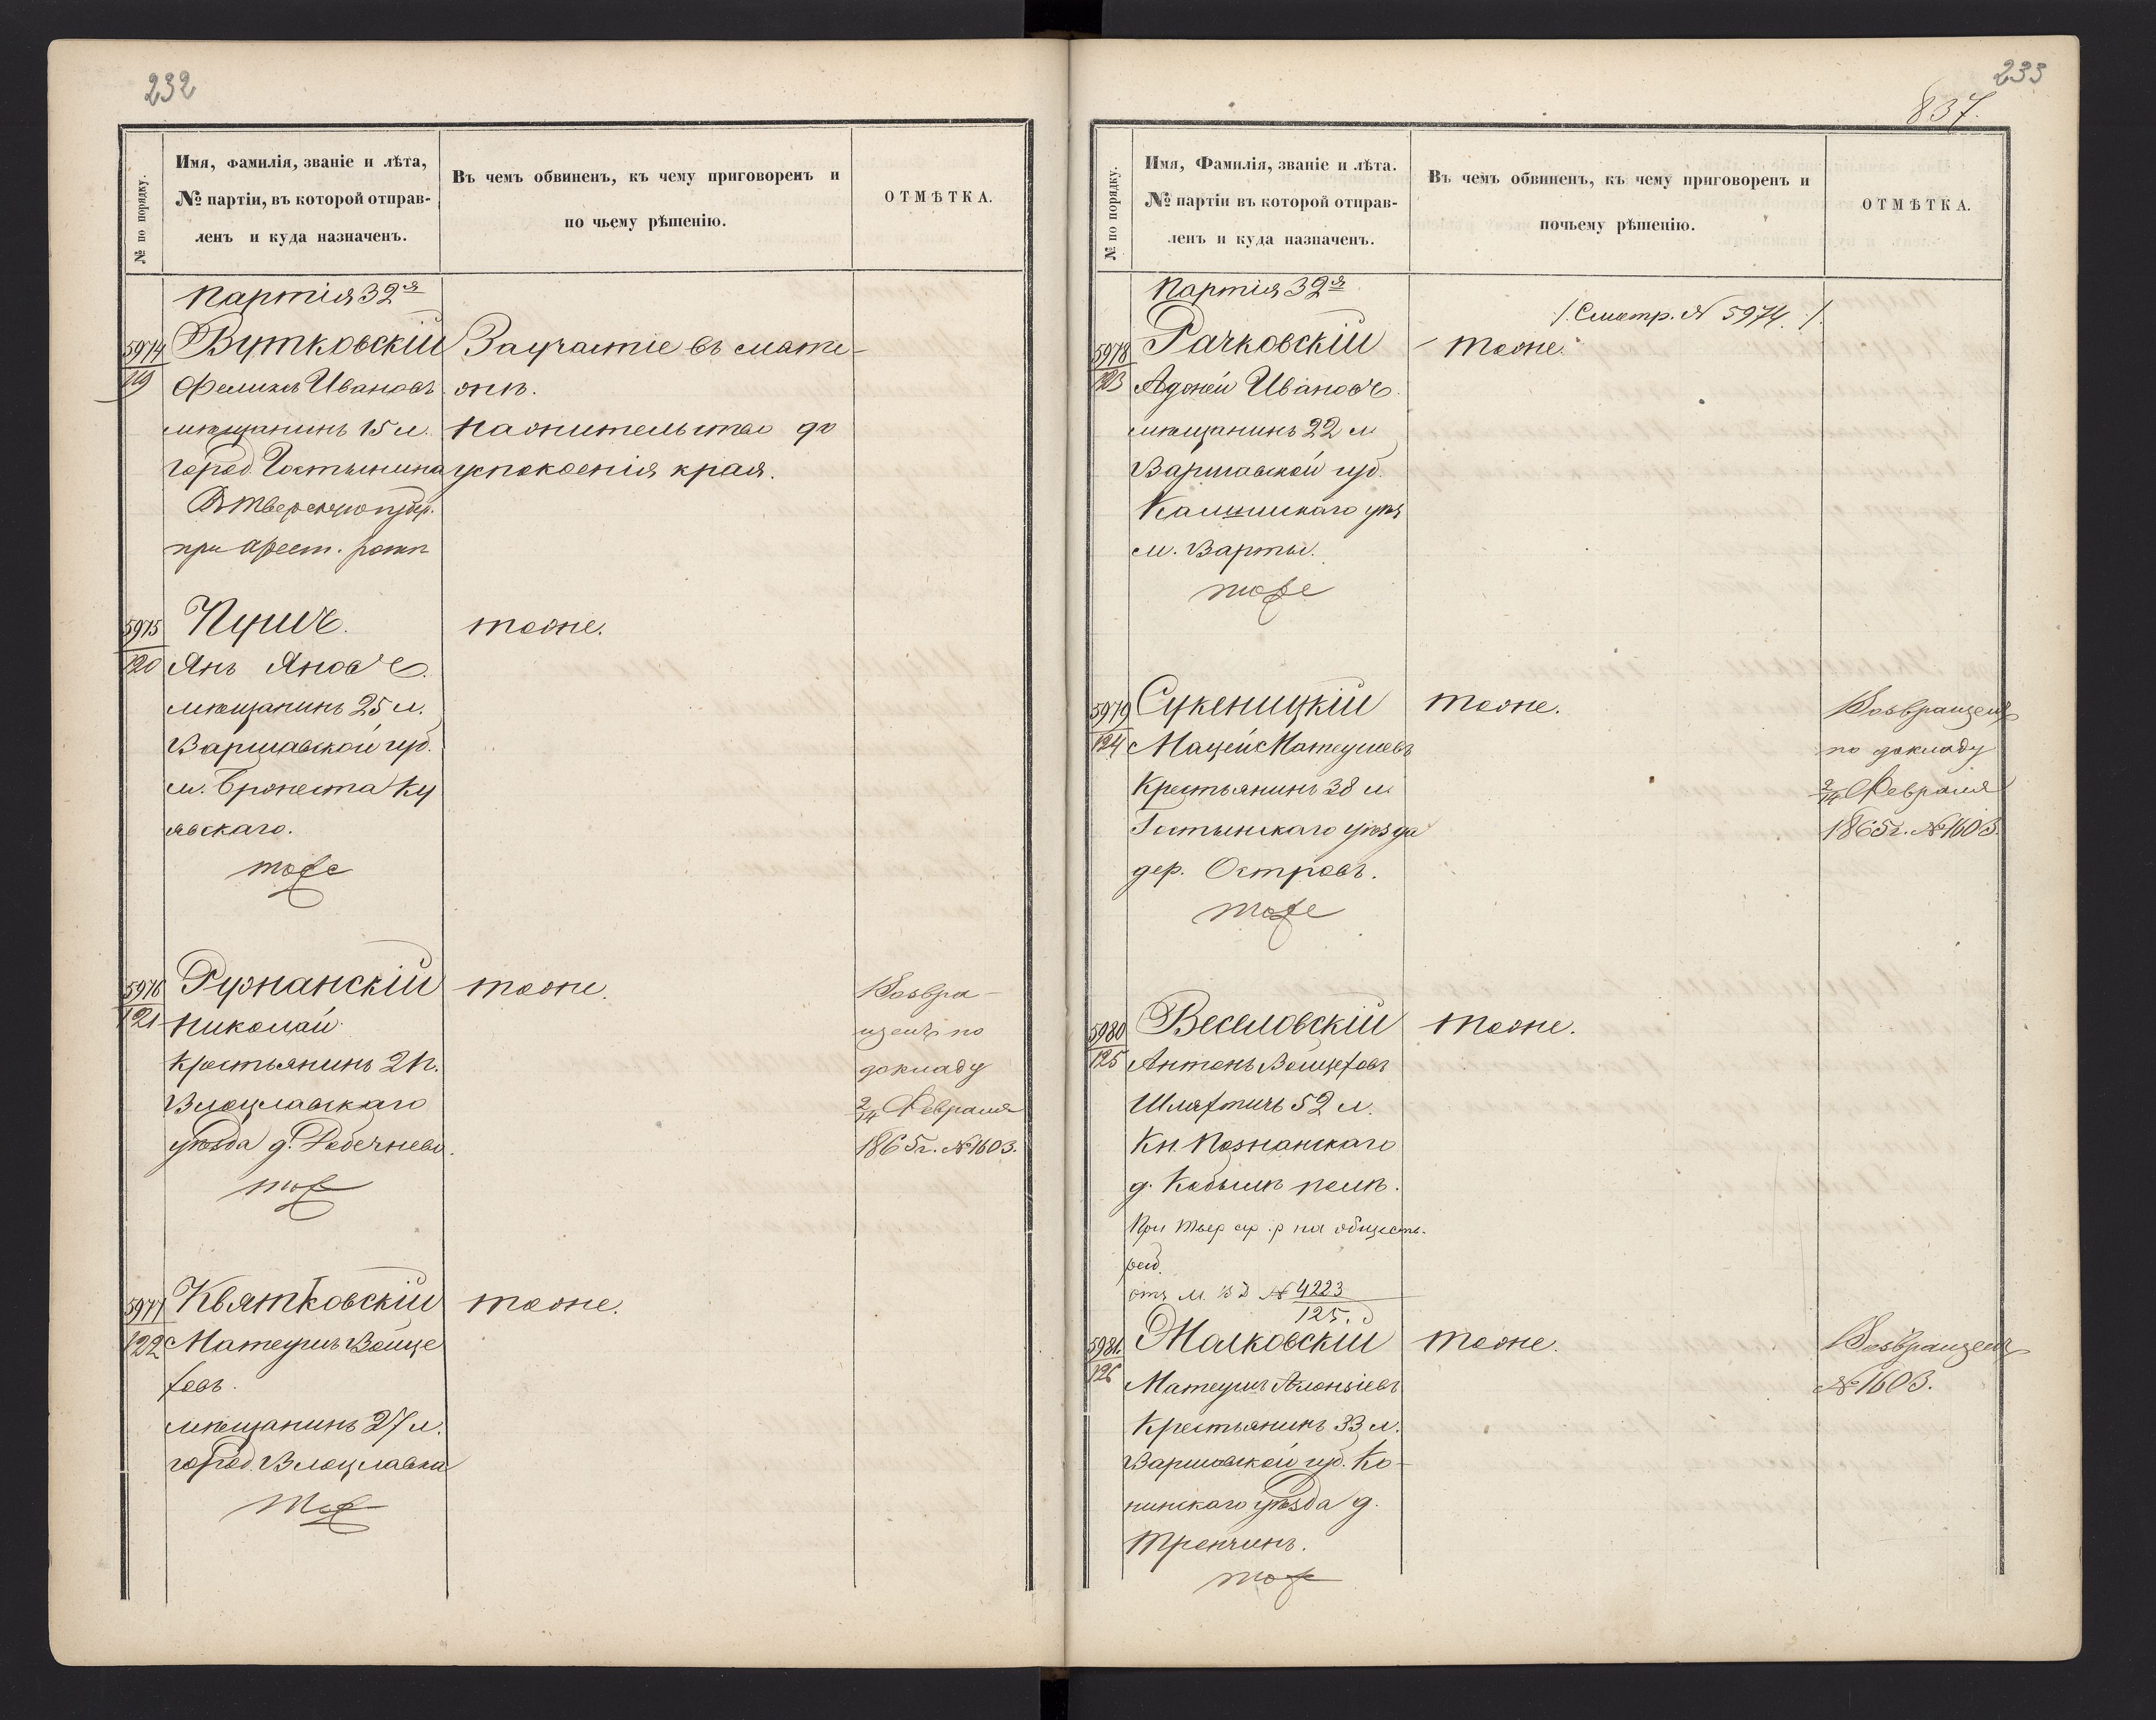 232
№ по порядку.
Имя, Фамилія, званіе и лѣта,
№ партіи, въ которой отправ-
ленъ и куда назначенъ.
Въ чемъ обвиненъ, къ чему приговоренъ и
по чьему рѣшенію.
ОТМѢТКА.
Партія 32я
5974
119
Вутковскій
Феликсъ Ивановъ
мѣщанинъ 15 л.
город. Гостынина
В Тверскую губер.
при арест. роты
За участіе въ мяте-
жѣ.
На жительство до
успокоенія края.
5975
120
Пушъ.
Янъ Яновъ.
мѣщанинъ 25 л.
Варшавской губ.
м. Бржеста Ку
явскаго.
тоже
тоже.
5976
121
Ружанскій
Николай
Крестьянинъ 21 г.
Влоцлавскаго
уѣзда д.
тож
тоже.
Возвра-
щенъ по
докладу
2/14 Февраля
1865 г. №1603.
5977
122
Квятковскій
Матеушъ Войце
ховъ.
мѣщанинъ 27 л.
город. Влоцлавка
тож
тоже.
233
837.
№ по порядку.
Имя, Фамилія, званіе и лѣта.
№ партіи въ которой отправ-
ленъ и куда назначенъ.
Въ чемъ обвиненъ, къ чему приговоренъ и
почьему рѣшенію.
ОТМѢТКА.
Партія 32я
/. Смотр. № 5974. /.
5978
123
Рачковскій
Ивановъ.
мѣщанинъ 22 л
Варшавской губ.
Калишскаго уѣз
м. Варты.
тоже
тоже.
5979
124
Сукеницкій
Мацей Матеушевъ
Крестьянинъ 38 л.
Гостынскаго уѣзда
дер. Островъ.
тоже
тоже.
Возвращенъ
по докладу
2/14 Февраля
1865 г. №1603.
5980
125
Веселовскій
Антонъ Войцеховъ
Шляхтичъ 52 л.
Кн. Познанскаго
д.
При Твер ар. р на обществ.
раб.
отъ М. В Д № 4223
125.
тоже.
5981.
126
Малковскій
Матеушъ
Крестьянинъ 33 л.
Варшавской губ. Ко-
нинскаго уѣзда д.
тож
тоже.
Возвращенъ
№ 1603.